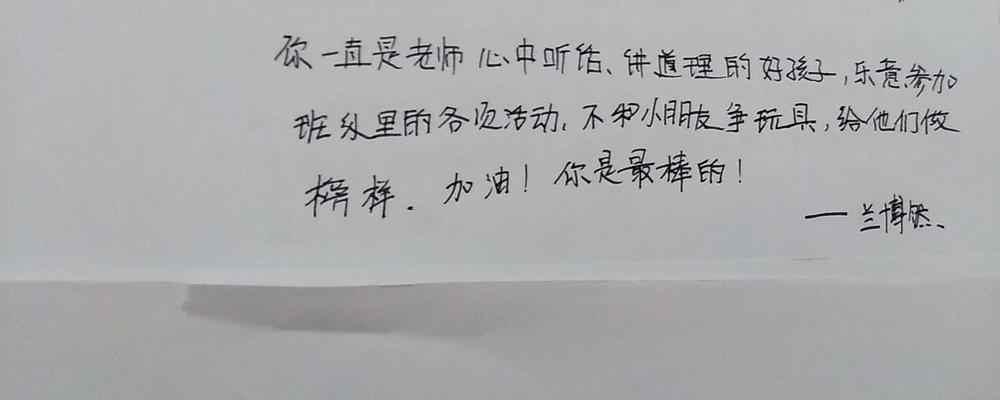 你一直是老师心中听话、讲道理的好孩子,乐意参加
班级里的各项活动,不和小朋友争玩具,给他们做
榜样.加油!你是最棒的!
——兰博然、